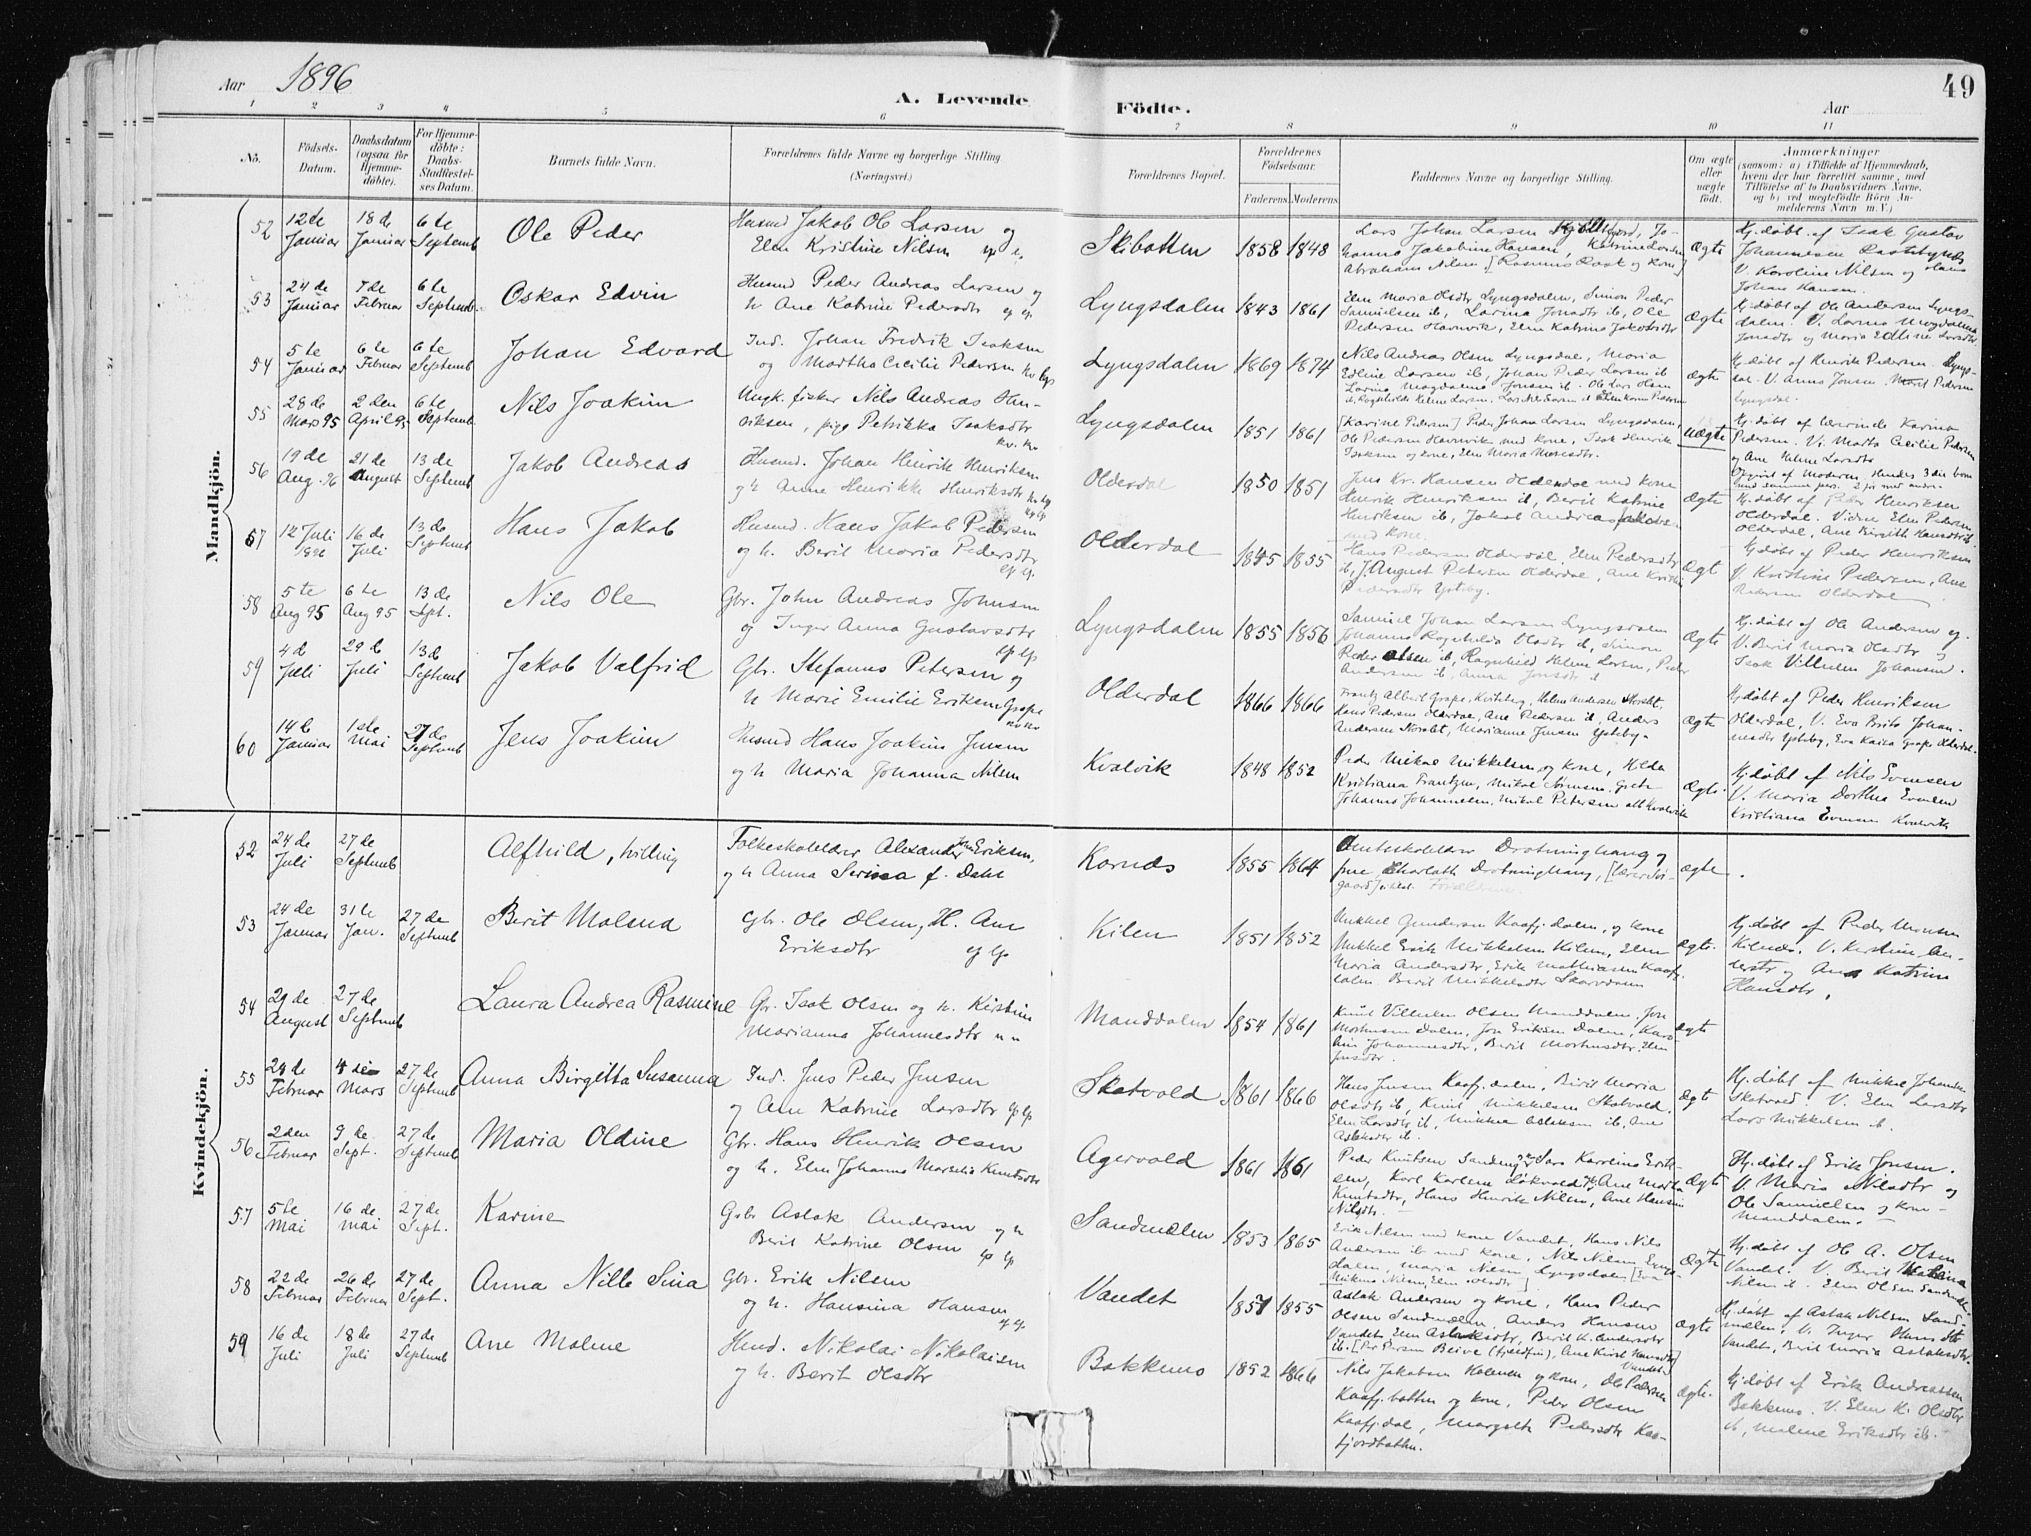 Aar 1896
A. Levende
Födte.
Aar
49
1 2 3 4 5 6 7 8 9 10 11
No.
Födsels-
Datum.
Daabsdatum
(ogsaa for
Hjemme-
döbte).
For Hjemme-
döbte:
Daabs-
Stadfæstel-
ses Datum.
Barnets fulde Navn.
Forældrenes fulde Navne og borgerlige Stilling.
(Næringsvei.)
Forældrenes Bopæl.
Forældrenes
Födselsaar.
Faderens. Moderens.
Faddernes Navne og borgerlige Stilling.
Om ægte
eller
uægte
födt.
Anmærkninger
(saasom: a) i Tilfælde af Hjemmedaab,
hvem der har forrettet samme, med
Tilföielse af to Daabsvidners Navne.
og b) ved uægtefödte Börn An-
melderens Navn m. V.)
Mandkjön.
52 12 de Januar 18 de Januar 6 te Septemb Ole Peder
Husmd Jakob Ol Larsen og
Elen Kristine Nilsen
Skibotten 1858 1848
Ægte
Hj. døbt af Isak Gustav
V. Karoline Nilsen og Hans
Johan Hansen.
53 24 de Januar 7 de Februar 6 te Septemb. Oskar Edvin
Husmd Peder Andreas Larsen og
h Ane Katrine Pedersdtr
Lyngsdalen 1843 1861
Elen Maria Olsdtr Lyngsdalen, Simon Peder
Samuelsen ib, Larina Jonsdtr ib, Ole
Pedersen Havnvik, Elen Katrine Jakobsdtr
Ægte
Hj. døbt af Ole Andersen Lyngs-
dalen. V. Larina Magdalena
Jonsdtr og Maria Edline Larsdtr.
54 5 te Januar 6 te Februar 6 te Septemb Johan Edvard
Ind. Johan Fredrik Isaksen
og Martha Cecilie Pedersen
Lyngsdalen 1869 1874
Nils Andreas Olsen Lyngsdal, Maria
Edline Larsen ib, Johan Peder Larsen ib
Larina Magdalena Jonsen ib. Ole Lars Olsen
Ægte
Hj. døbt af Henrik Pedersen Lyngs-
dal. V. Anna Jonsen Marit Pedersen
Lyngsdal.
55 28 de Mars 95 2 den April 95 6 te Septemb. Nils Joakim
Ungk. fisker Nils Andreas Hen-
riksen, pige Petrikka Isaksdtr
Lyngsdalen 1851 1861
[Karine Pedersen] Peder Johan Larsen Lyngsdalen,
Ole Pedersen Havnvik med kone, Isak Henrik
Isaksen og kone, Elen Maria
Uægte
Hj. døbt af lærerinde Karina
Pedersen. V. Marta Cecilie Pedersen
og Ane Helene Larsdtr
Opgivet af Moderen. Hendes 3die barn
56 19 de Aug. 96 21 de August 13 de Septemb Jakob Andreas
Husmd. Johan Henrik Henriksen
og h Anne Henrikke Henriksdtr
Olderdal 1850 1851
Jens Kr. Hansen Olderdal med kone
Henrik Henriksen ib, Berit Katrine
Henriksen ib, Jakob Andreas
med kone.
Ægte
Hj. døbt af Peder Henriksen
Olderdal. Vidne Elen Pedersen
Olderdal, Ane Birgith Hansdtr ib.
57 12 Juli 1896 16 de Juli 13 de Septemb Hans Jakob
Husmd. Hans Jakob Pedersen
og h. Berit Maria Pedersdtr
Olderdal 1845 1855
Hans Pedersen Olderdal, Elen Pedersdtr
ib, J. August Petersen Olderdal, Ane Kristine
Pedersdtr Ysteby.
Ægt
Hj døbt af Peder Henriksen
V. Kristine Pedersen, Ane
Pedersen Olderdal
58 5 te Aug 95 6 te Aug 95 13 de Sept. Nils Ole
Gbr. John Andreas Johnsen
og Inger Anna Gustavsdtr
Lyngsdalen 1855 1856
Samuel Johan Larsen Lyngsdalen
Johanna Ragnhilda Olsdtr ib, Simon
Peder Olsen ib, Ragnhild Helene Larsen, Peder
Andersen ib, Anna Jonsdtr ib
Ægte
Hj. døbt af Ole Andersen og
V. Berit Maria Olsdtr og
Isak Vilhelm Johansen.
59 4 de Juli 29 de Juli 13 de Septemb Jakob Valfrid
Gbr. Stefanus Petersen og
h Marie Emilie Eriksen Grape
Olderdal 1866 1866
Frantz Albert Grape, Kviteberg, Helene Andersen Norslet,
Hans Pedersen Olderdal, Ane Pedersen ib, Anders
Andersen Norslet, Marianne Jensen Ysteby.
Ægte
Hj. døbt af Peder Henriksen
Olderdal, V. Eva Brita Johan-
nesdtr Ysteby, Eva Kaisa Grape Olderdal.
60 14 de Januar 1ste Mai 27 de Septemb Jens Joakim
Husmd Hans Joakim Jensen
og h Maria Johanna Nilsen
Kvalvik 1848 1852
Peder Mikal Mikkelsen og kone, Helda
Kristiana Frantzen, Mikal Simonsen, Grete
Johanna Johannesen, Mikal Petersen alle Kvalvik
Ægte.
Hj. døbt af Nils Evensen
V. Maria Dorthea Evensen
Kristiana Evensen Kvalvik
Kvindekjön.
52 24 de Juli 27 de Septemb Alfhild, tvilling
Folkeskolelærer Alexander Eriksen,
og h Anna Serina f. Dahl
Kornæs 1855 1864
Amtsskolelærer Drotninghaug og
frue Charlotte Drotninghaug,
Ægte
53 24 de Januar 31 te Jan. 27 de Septemb Berit Malena
Gbr. Ole Olsen, H. Ane
Eriksdtr
Kilen 1851 1852
Mikkel Gundersen Kaafj.dalen, og kone
Mikkel Erik Mikkelsen Kilen, Elen
Maria Andersdtr, Erik Mathiasen Kaafj.
dalen Berit Mikkelsdtr Skarvdalen
Ægte.
Hj. døbt af Peder Monsen
V. Kirstine An-
derstr og Ane Katrine
Hansdtr.
54 29 de August 27 de Septemb Laura Andrea Rasmine
Gr. Isak Olsen og h. Kirstine
Marianna Johannesdtr
Manddalen 1854 1861
Knut Vilhelm Olsen Manddalen, Jon
Mortensen Dalen, Jon Eriksen Dalen, Karo-
line Johannesdtr, Berit Mortensdtr, Elen
Jensdtr.
Ægt
55 24 de Februar 4 de Mars 27 de Septemb Anna Birgitta Susanna
Ind. Jens Peder Jensen
og Ane Katrine Larsdtr
Skatvold 1861 1866
Hans Jensen Kaafj.dalen, Berit Maria
Olsdtr ib, Knut Mikkelsen Skatvold.
Elen Larsdtr ib, Mikkel Aslaksen ib, Ane
Aslaksdtr ib.
Ægt
Hj. døbt af Mikkel Johannesen
Skatvold. V. Elen Larsdtr
Lars Mikkelsen ib.
56 2 den Februar 9 de Sept. 27 de Septemb Maria Oldine
Gbr. Hans Henrik Olsen
og h. Elen Johanna Marselie Knutsdtr
Agervold 1861 1861
Peder Knutsen Samuelsen, Sara Karoline Erik-
sen, Karl Karlsen Løkvold, Ane Martha
Knutsdtr, Hans Henrik Nilsen, Ane Hansine
Nilsdtr.
Ægt
Hj. døbt af Erik Jonsen.
V. Maria Nilsdtr og
Ole Samuelsen og kone
Manddalen.
57 5 te Mai 16 de Mai 27 de Sept. Karine
Gbr Aslak Andersen og h
Berit Katrine Olsen
Sandmælen 1853 1865
Erik Nilsen med kone Vandet, Hans Nils
Andersen ib med kone, Nils Nilsen Lyngs-
dalen, Maria Nilsen Lyngsdalen
Ægte
Hj. døbt af Ole A. Olsen
Vandet. V. Berit Katrina
Nilsen ib. Elen Olsen Sandmælen
58 22 de Februar 26 de Februar 27 de Sept. Anna Nille Sina
Gbr. Erik Nilsen
og h. Hansina Hansen
Vandet 1851 1855
Aslak Andersen og kone, Hans Peder
Olsen Sandmælen, Anders Hansen
Vandet, Elen Aslaksdtr, Berit K. Andersdtr
Ægte
Hj. døbt af Aslak Nilsen Sand-
mælen, V. Inger Hansdtr
Vandet, Berit Maria Aslaksdtr.
59 16 de Juli 18 de Juli 27 de Septemb Ane Malene
Husmd. Nikolai Nikolaisen
og h. Berit Olsdtr
Bakkemo 1852 1866
Nils Jakobsen Holmen og kone, Ole Pedersen
Kaafj.botten og kone, Peder Olsen
Kaafj.dal, Margrethe Pedersdtr Kaa-
fjordbotten.
Ægte.
Hj. døbt af Erik Andreassen
Bakkemo. V. Elen K. Olsdtr
ib, Malene Eriksdtr ib.